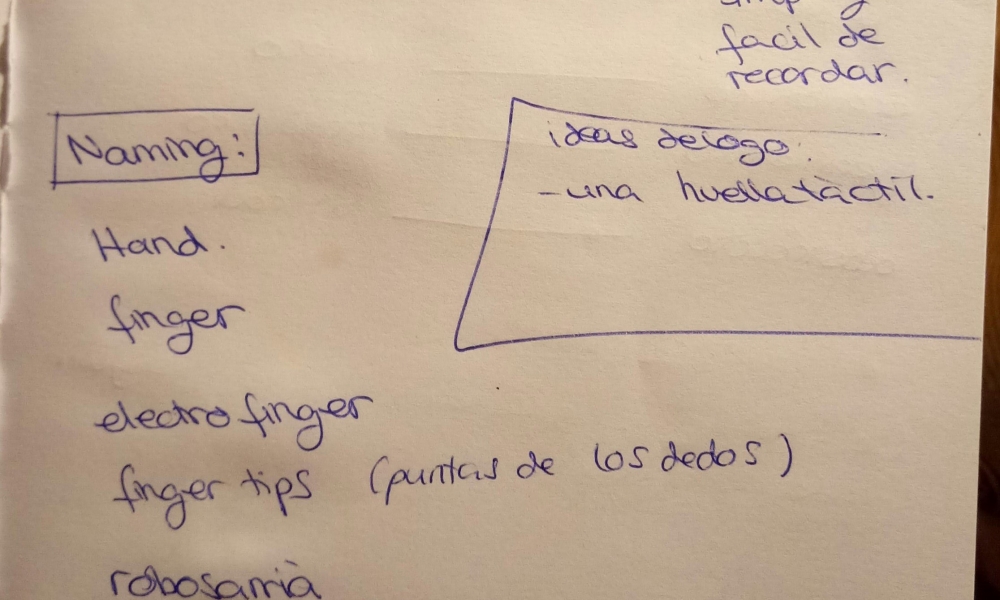 facil de
recordar.
Naming:
ideas de logo:
- una huella tàctil.
Hand.
finger
electro finger
finger tips (puntas de los dedos)
robosarrià